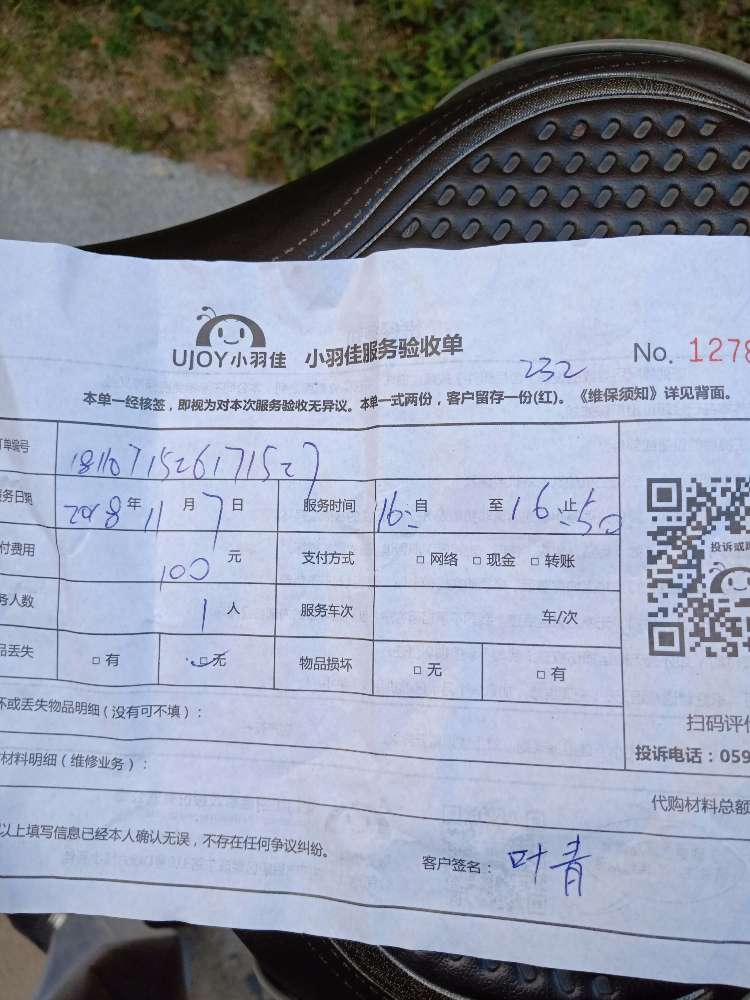 UJOY小羽佳 小羽佳服务验收单 No. 1278
232
本单一经核签，即视为对本次服务验收无异议。本单一式两份，客户留存一份(红)。《维保须知》详见背面。
订单编号 1811071526171527
服务日期 2018年11月7日 服务时间 16:自 至16:止50
付费用 100元 支付方式 □ 网络 □ 现金 □ 转账
务人数 1人 服务车次 车/次
品丢失 □ 有 □ 无 物品损坏 □ 无 □ 有
投诉或
扫码评价
坏或丢失物品明细（没有可不填）：
投诉电话：059
材料明细（维修业务）：
代购材料总额
以上填写信息已经本人确认无误，不存在任何争议纠纷。
客户签名：叶青